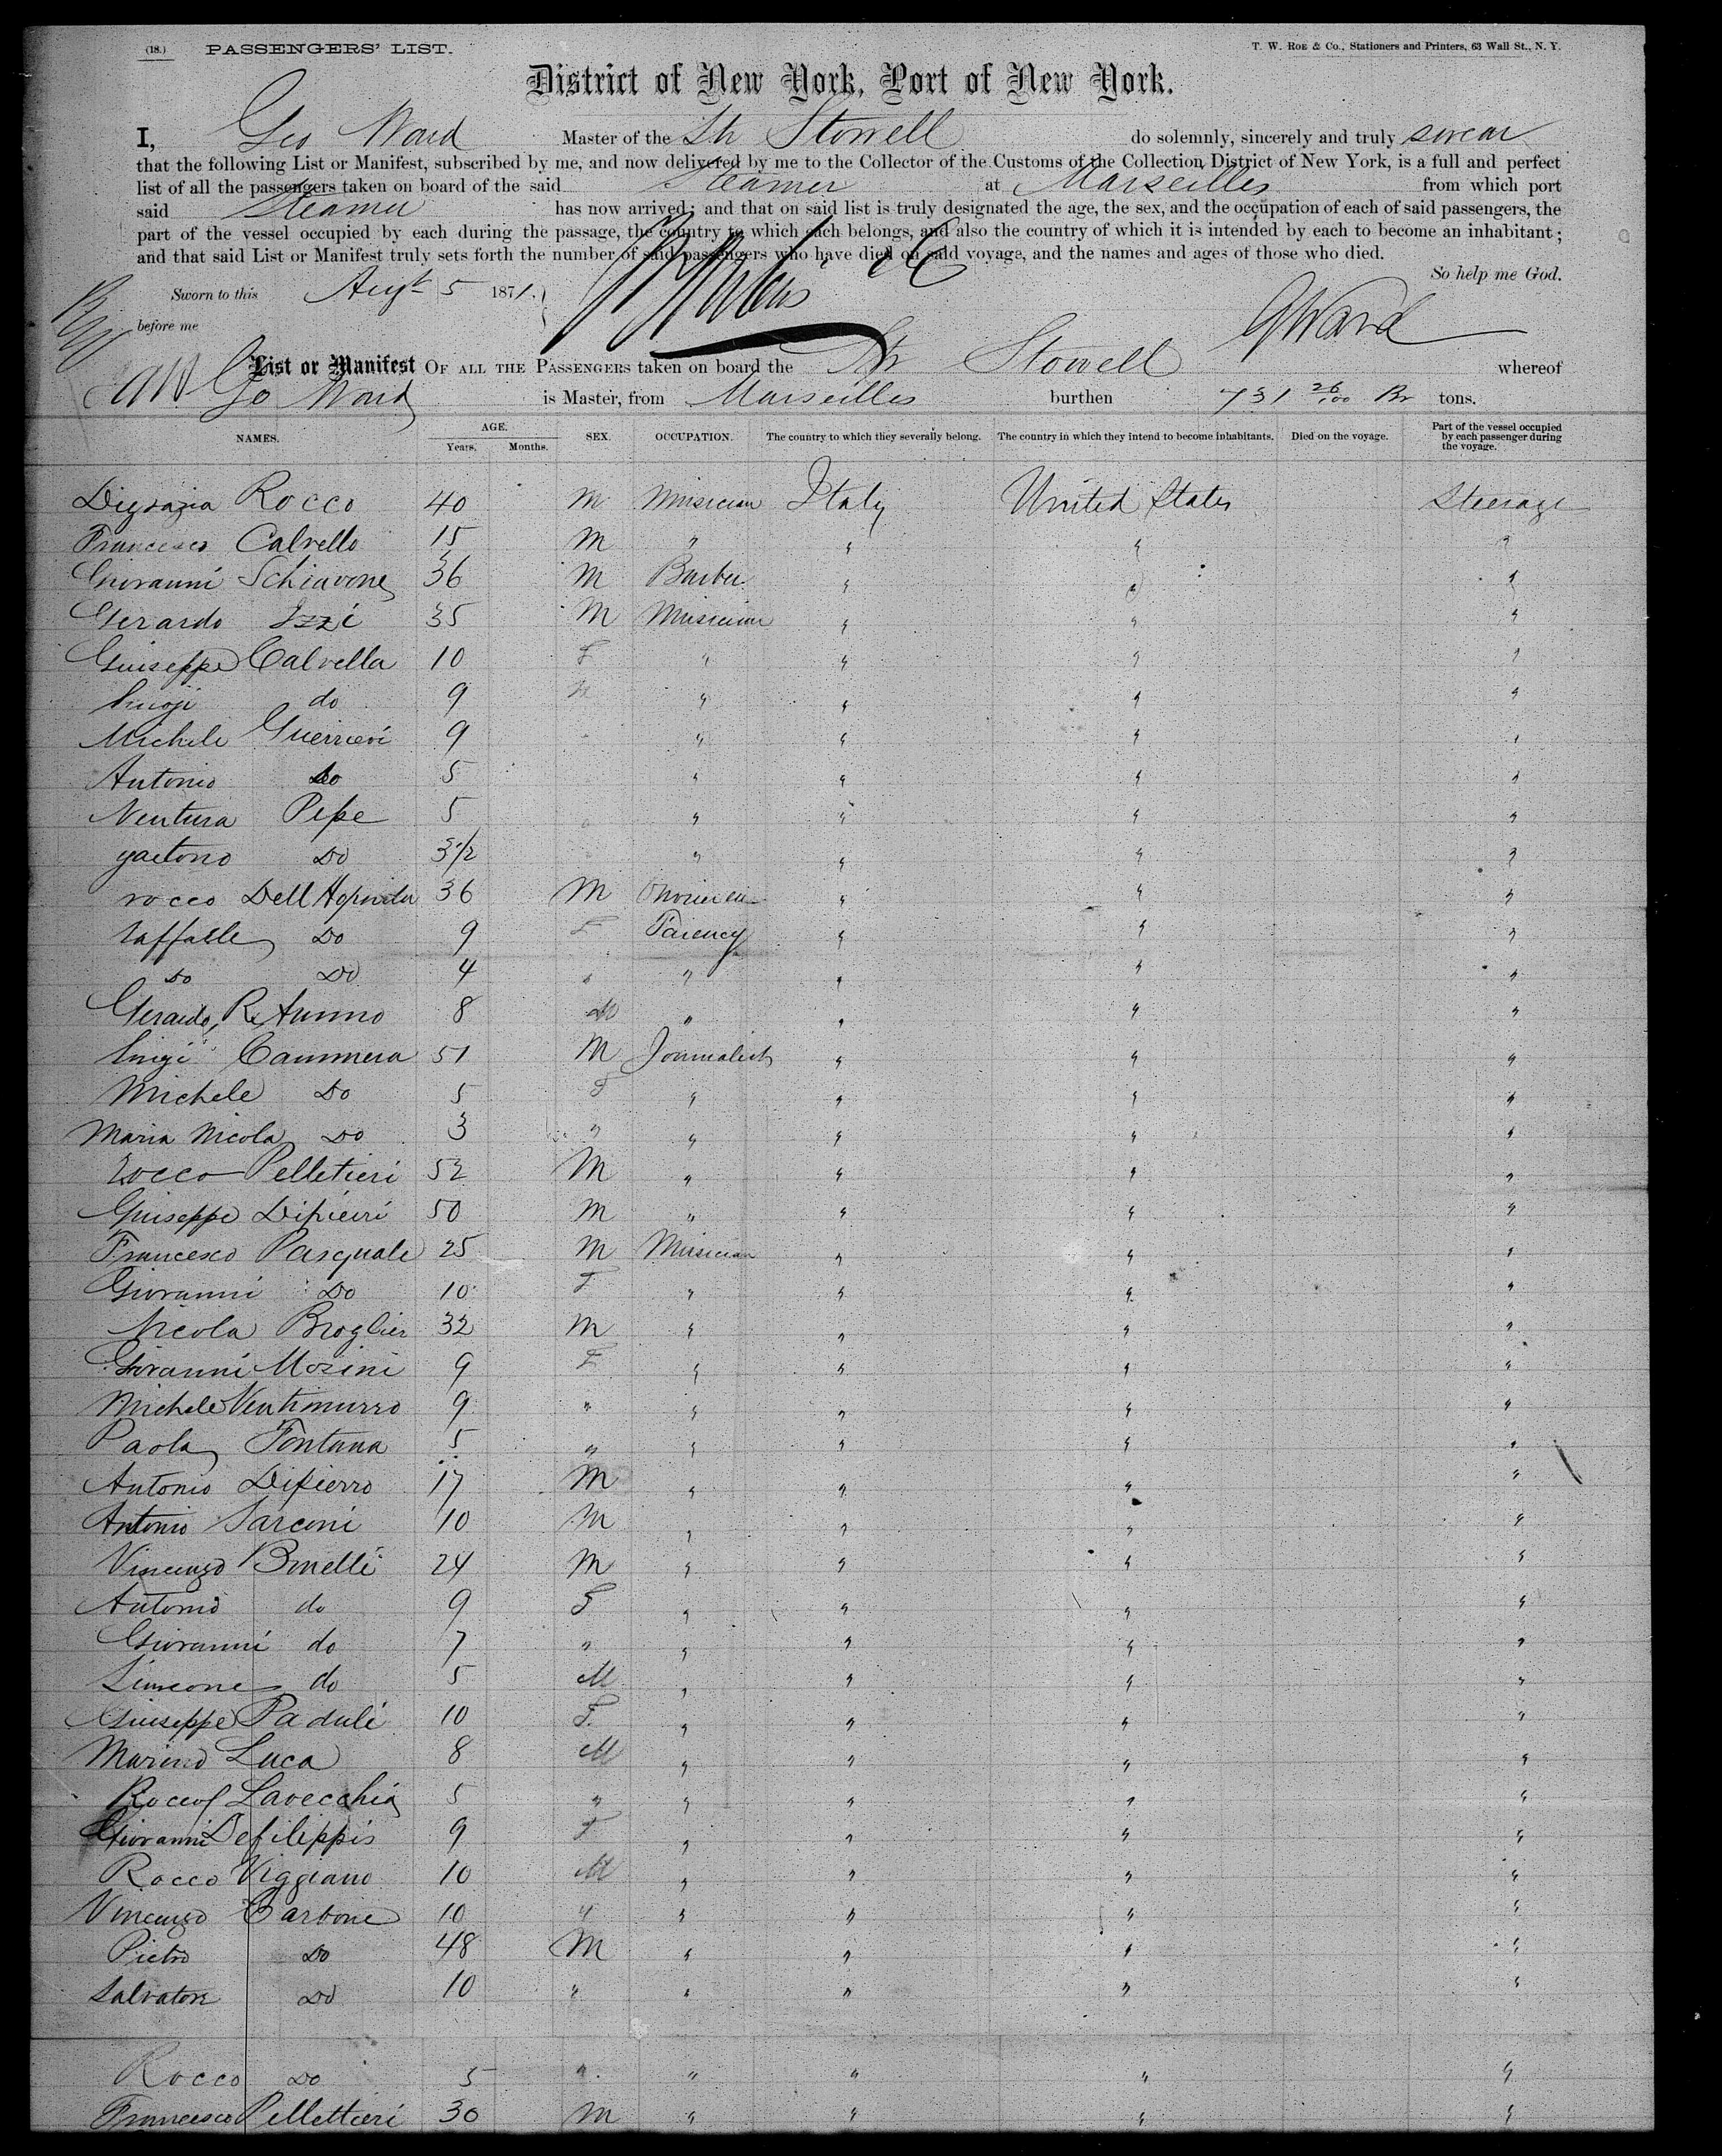 (18.) PASSENGERS' LIST. T. W. ROE & Co., Stationers and Printers, 63 Wall St., N. Y.
District of New York, Port of New York.
I, Geo Ward Master of the Str Stowell do solemnly, sincerely and truly swear
that the following List or Manifest, subscribed by me, and now delivered by me to the Collector of the Customs of the Collection District of New York, is a full and perfect
list of all the passengers taken on board of the said Steamer at Marseilles from which port
said Steamer has now arrived; and that on said list is truly designated the age, the sex, and the occupation of each of said passengers, the
part of the vessel occupied by each during the passage, the country to which each belongs, and also the country of which it is intended by each to become an inhabitant;
and that said List or Manifest truly sets forth the number of said passengers who have died on said voyage, and the names and ages of those who died.
So help me God.
Sworn to this Augt 5 1871.
before me GWard
List or Manifest OF ALL THE PASSENGERS taken on board the Str Stowell whereof
Geo Ward is Master, from Marseilles burthen 731 26/100 Br tons.
NAMES. AGE. Years. Months. SEX. OCCUPATION. The country to which they severally belong. The country in which they intend to become inhabitants. Died on the voyage. Part of the vessel occupied by each passenger during the voyage.
Digrazia Rocco 40 M Musician Italy United States Steerage
Francesco Calvello 15 M " " " "
Giovanni Schiavone 36 M Barber " " "
Gerardo Izzi 35 M Musician " " "
Giuseppe Calvella 10 F " " " "
Luigi do 9 M " " " "
Michele Guerrieri 9 " " " "
Antonio Do 5 " " " "
Ventura Pepe 5 " " " "
gaetono Do 3 1/2 " " " "
rocco Dell 36 M " " "
raffaele Do 9 F " " "
Do Do 4 " " " " "
Gerardo 8 M " " " "
Luigi Cammera 51 M Journalist " " "
Michele Do 5 F " " " "
Maria Nicola Do 3 " " " " "
Rocco Pelletieri 52 M " " " "
Giuseppe Dipieri 50 M " " " "
Francesco Pasquale 25 M Musician " " "
Giovanni Do 10 F " " " "
Nicola Broglier 32 M " " " "
Giovanni Mozini 9 F " " " "
Michele Ventimurro 9 " " " " "
Paola Fontana 5 " " " " "
Antonio Dipierro 17 M " " " "
Antonio Sarconi 10 M " " " "
Vincenzo Bonelli 24 M " " " "
Antonio do 9 F " " " "
Giovanni do 7 " " " " "
Simeone do 5 M " " " "
Giuseppe Paduli 10 F. " " " "
Marino Luca 8 M " " " "
Rocco Lavecchia 5 " " " " "
Giovanni Defilippis 9 F " " " "
Rocco Viggiano 10 M " " " "
Vincenzo Carbone 10 " " " " "
Pietro Do 48 M " " " "
Salvatore Do 10 " " " " "
Rocco Do 5 " " " " "
Francesco Pellettieri 30 M " " " "